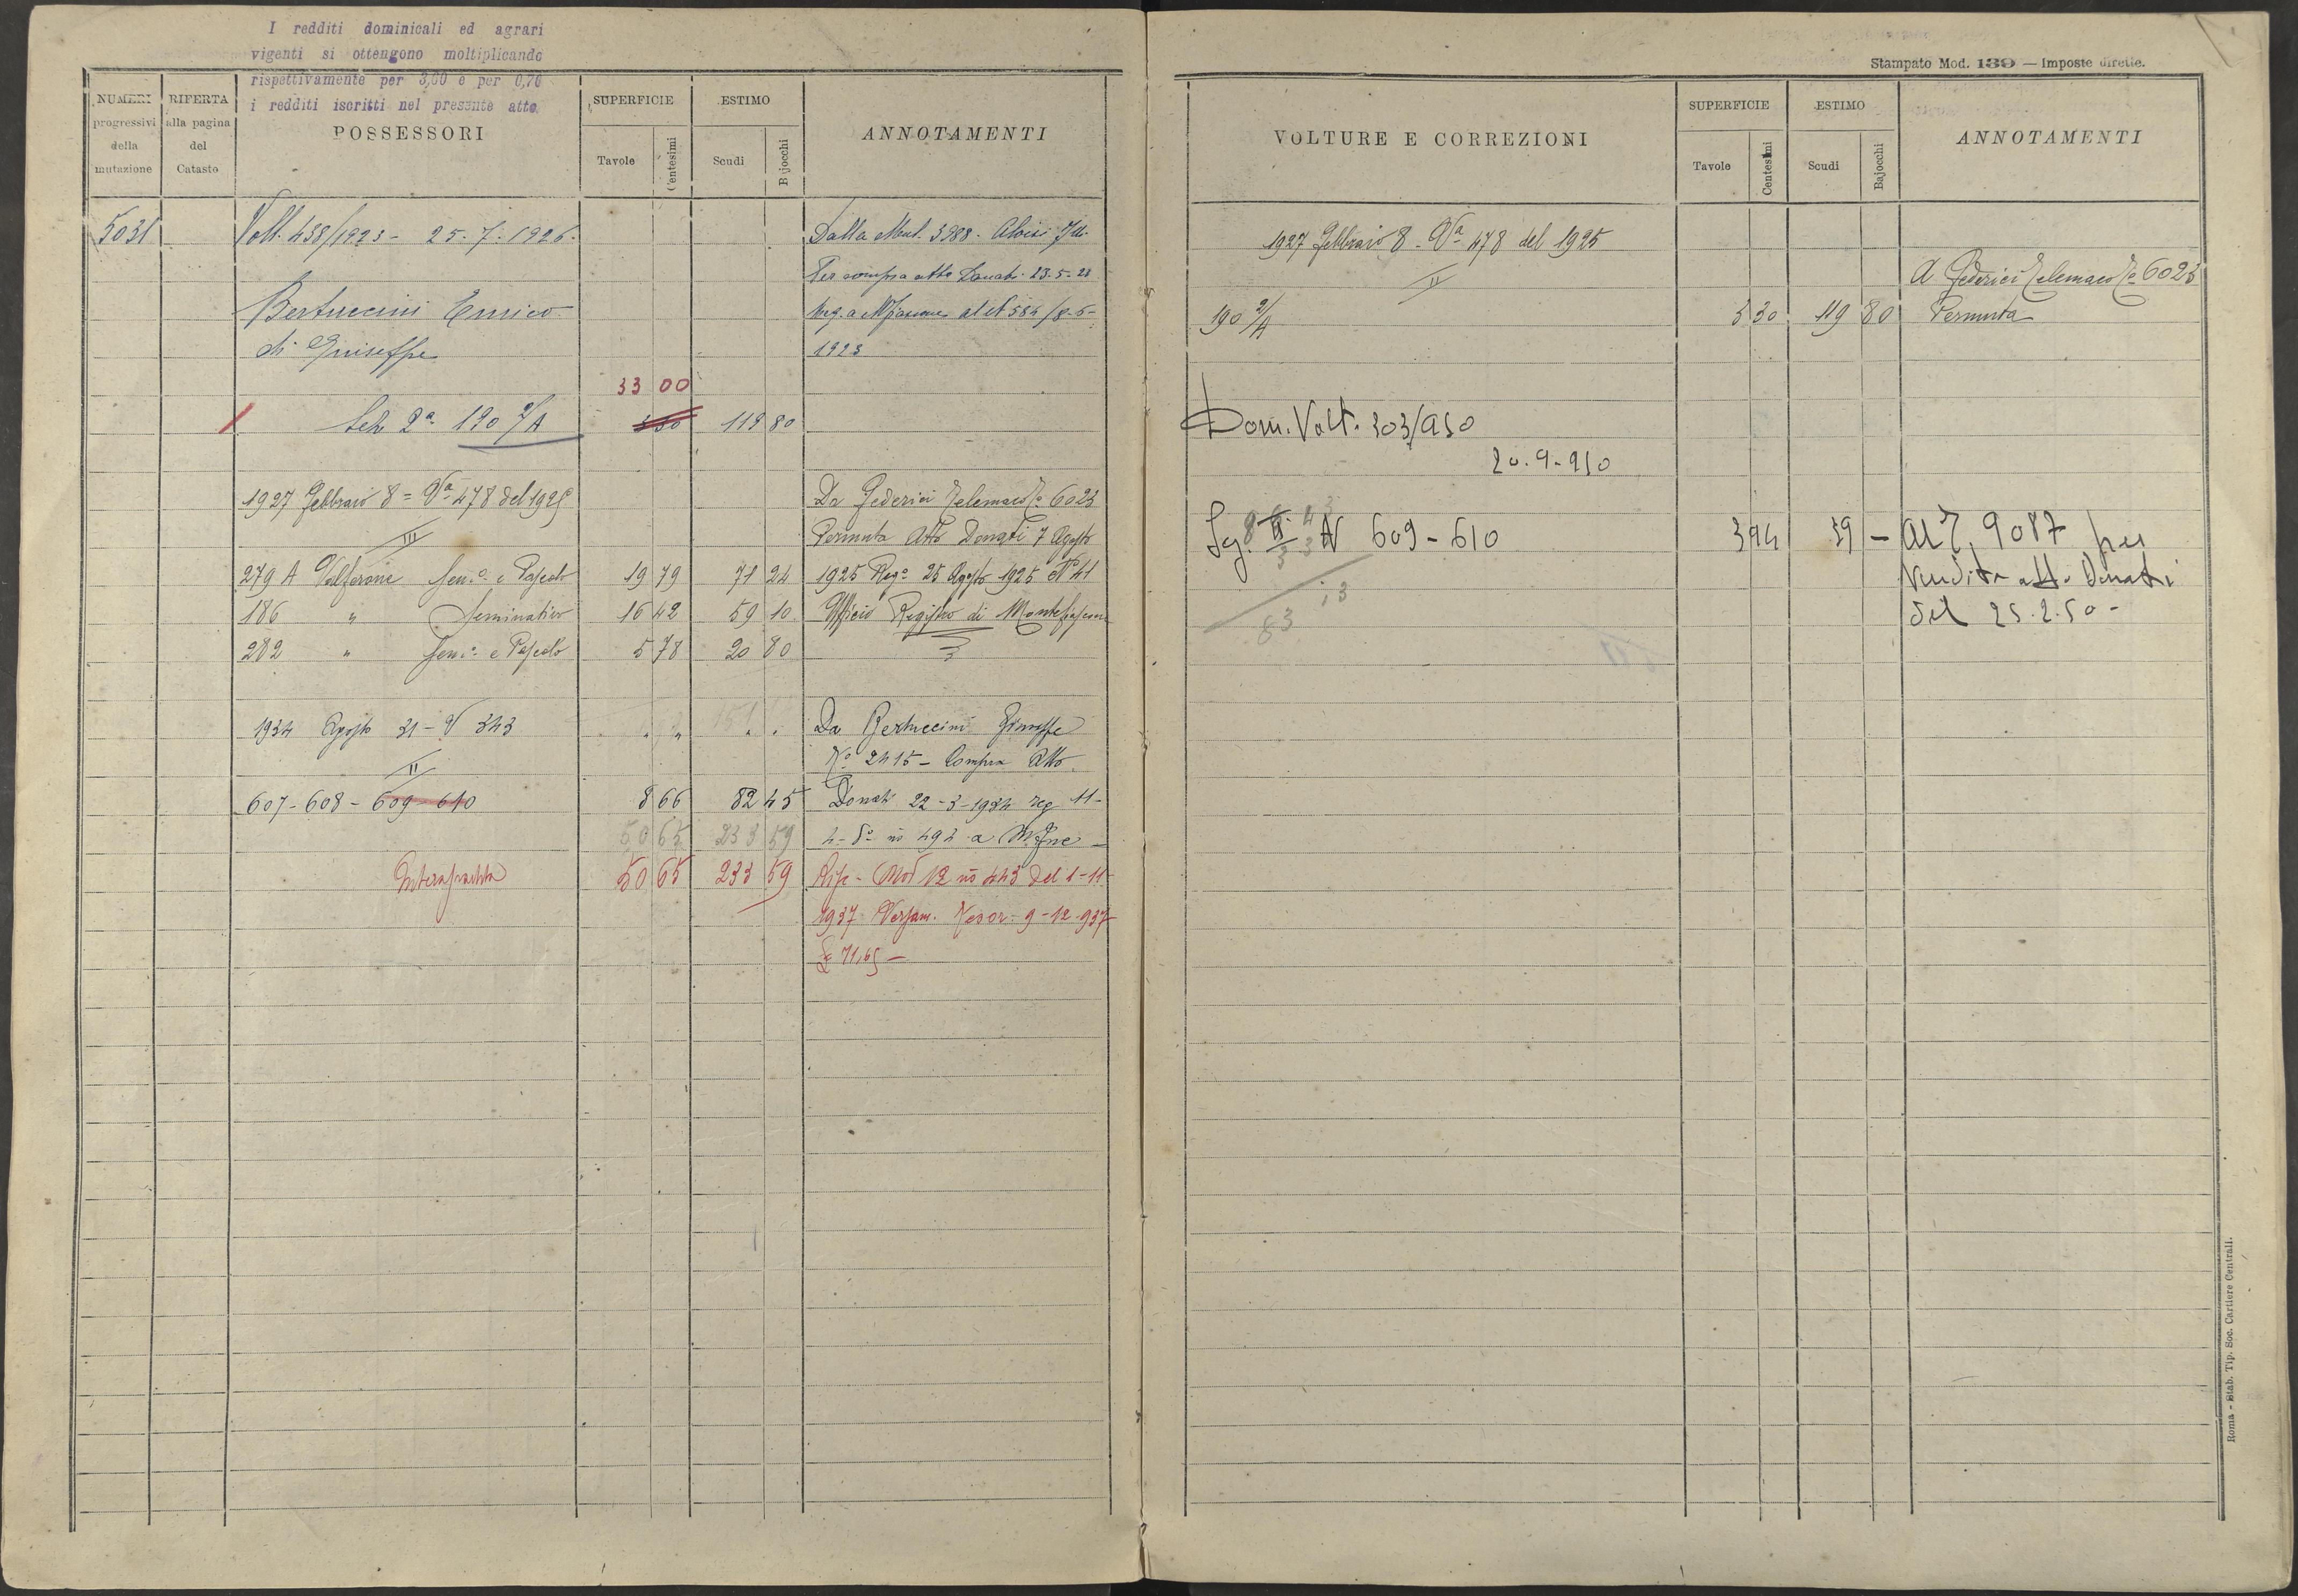 I redditi dominicali ed agrari
vigenti si ottengono moltiplicando
rispettivamente per 3,60 e per 0,70
i redditi iscritti nel presente atto.
NUMERI progressivi della mutazione
RIFERTA alla pagina del Catasto
POSSESSORI
SUPERFICIE
Tavole
Centesimi
ESTIMO
Scudi
Bajocchi
ANNOTAMENTI
5031
Volt. 438/1923 - 25.7.1926.
Dalla Mut. 3988. Aloisi
Per compra atto Donati 23-5-23
Bertuccini Enrico
Reg. a Mfiascone al N 584 / 8-6-
di Giuseppe
1923
33 00
Sez 2ª 190 2/A
3 30 119 80
1927 Febbraio 8 = Vª 478 del 1925
Da Federici Telemaco 6023
III
Permuta Atto Donati 7 Agosto
279 A Valferone Sem.º e Pascolo 19 79 71 24
1925 Regº 25 Agosto 1925 Nº 41
186 " Seminativo 16 42 59 10
Ufficio Registro di Montefiascone
282 " Sem.º e Pascolo 5 78 20 80
1934 Agosto 31 - V 343 " " " "
Da Bertuccini Giuseppe
II
Nº 2415 - Compra Atto
607 - 608 - 609 - 610 8 66 82 45
Donati 22-3-1934 reg 11-
50 65 233 59
4- nº 492 a
50 65 233 59
Mod 12 nº 443 del 1-11-
1937 Versam. Tesor. 9-12-937
£ 71,65 -
Stampato Mod. 139 — Imposte dirette.
VOLTURE E CORREZIONI
SUPERFICIE
Tavole
Centesimi
ESTIMO
Scudi
Bajocchi
ANNOTAMENTI
1927 Febbraio 8 - Vª 478 del 1925
II
A Federici Telemaco 6023
190 2/A 3 30 119 80 Permuta
Dom. Volt. 303/950
20.9.950
Sez. II N 609 - 610 3 94 39 - Al 9087 per
Vendita atto Donati
del 25.2.50 -
83
Roma - Stab. Tip. Soc. Cartiere Centrali.